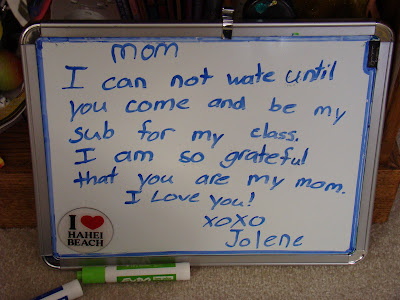 mom
I can not wate until
you come and be my
sub for my class.
I am so grateful
that you are my mom.
I Love you!
xoxo
Jolene
I ❤
HAHEI
BEACH